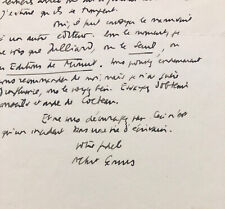 j'espère qu'ils se trompent.
Oui, il faut envoyer le manuscrit
à un autre éditeur. Pour le moment, je
ne vois que Julliard, ou le Seuil, ou
les Editions de Minuit. Vous pouvez évidemment
vous recommander de moi, mais je n'ai guère
d'influence, vous le voyez bien. Essayez d'obtenir
conseils et aide de Cocteau.
Et ne vous découragez pas. Ceci n'est
qu'un incident dans une vie d'écrivain.
Votre fidèle
Albert Camus